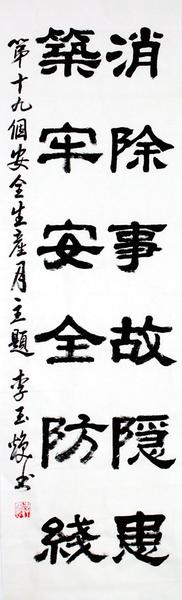 消除事故隐患
築牢安全防綫
第十九個安全生産月主題 李玉焕书